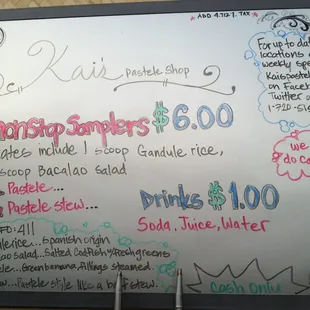 * ADD 4.712% TAX
Kai's Pastele Shop
For up to dat
locations
weekly spe
Kaispastel
on Faceb
Twitter
1-720-51
NonStop Samplers $6.00
ates include 1 scoop Gandule rice,
scoop Bacalao salad
Pastele...
Pastele stew...
we
do ca
Drinks $1.00
Soda, Juice, Water
FO: 411
ule rice... Spanish origin
ao salad... Salted Codfish & fresh greens
ele... Green banana, fillings steamed.
w... Pastele style like a beef stew.
Cash Only